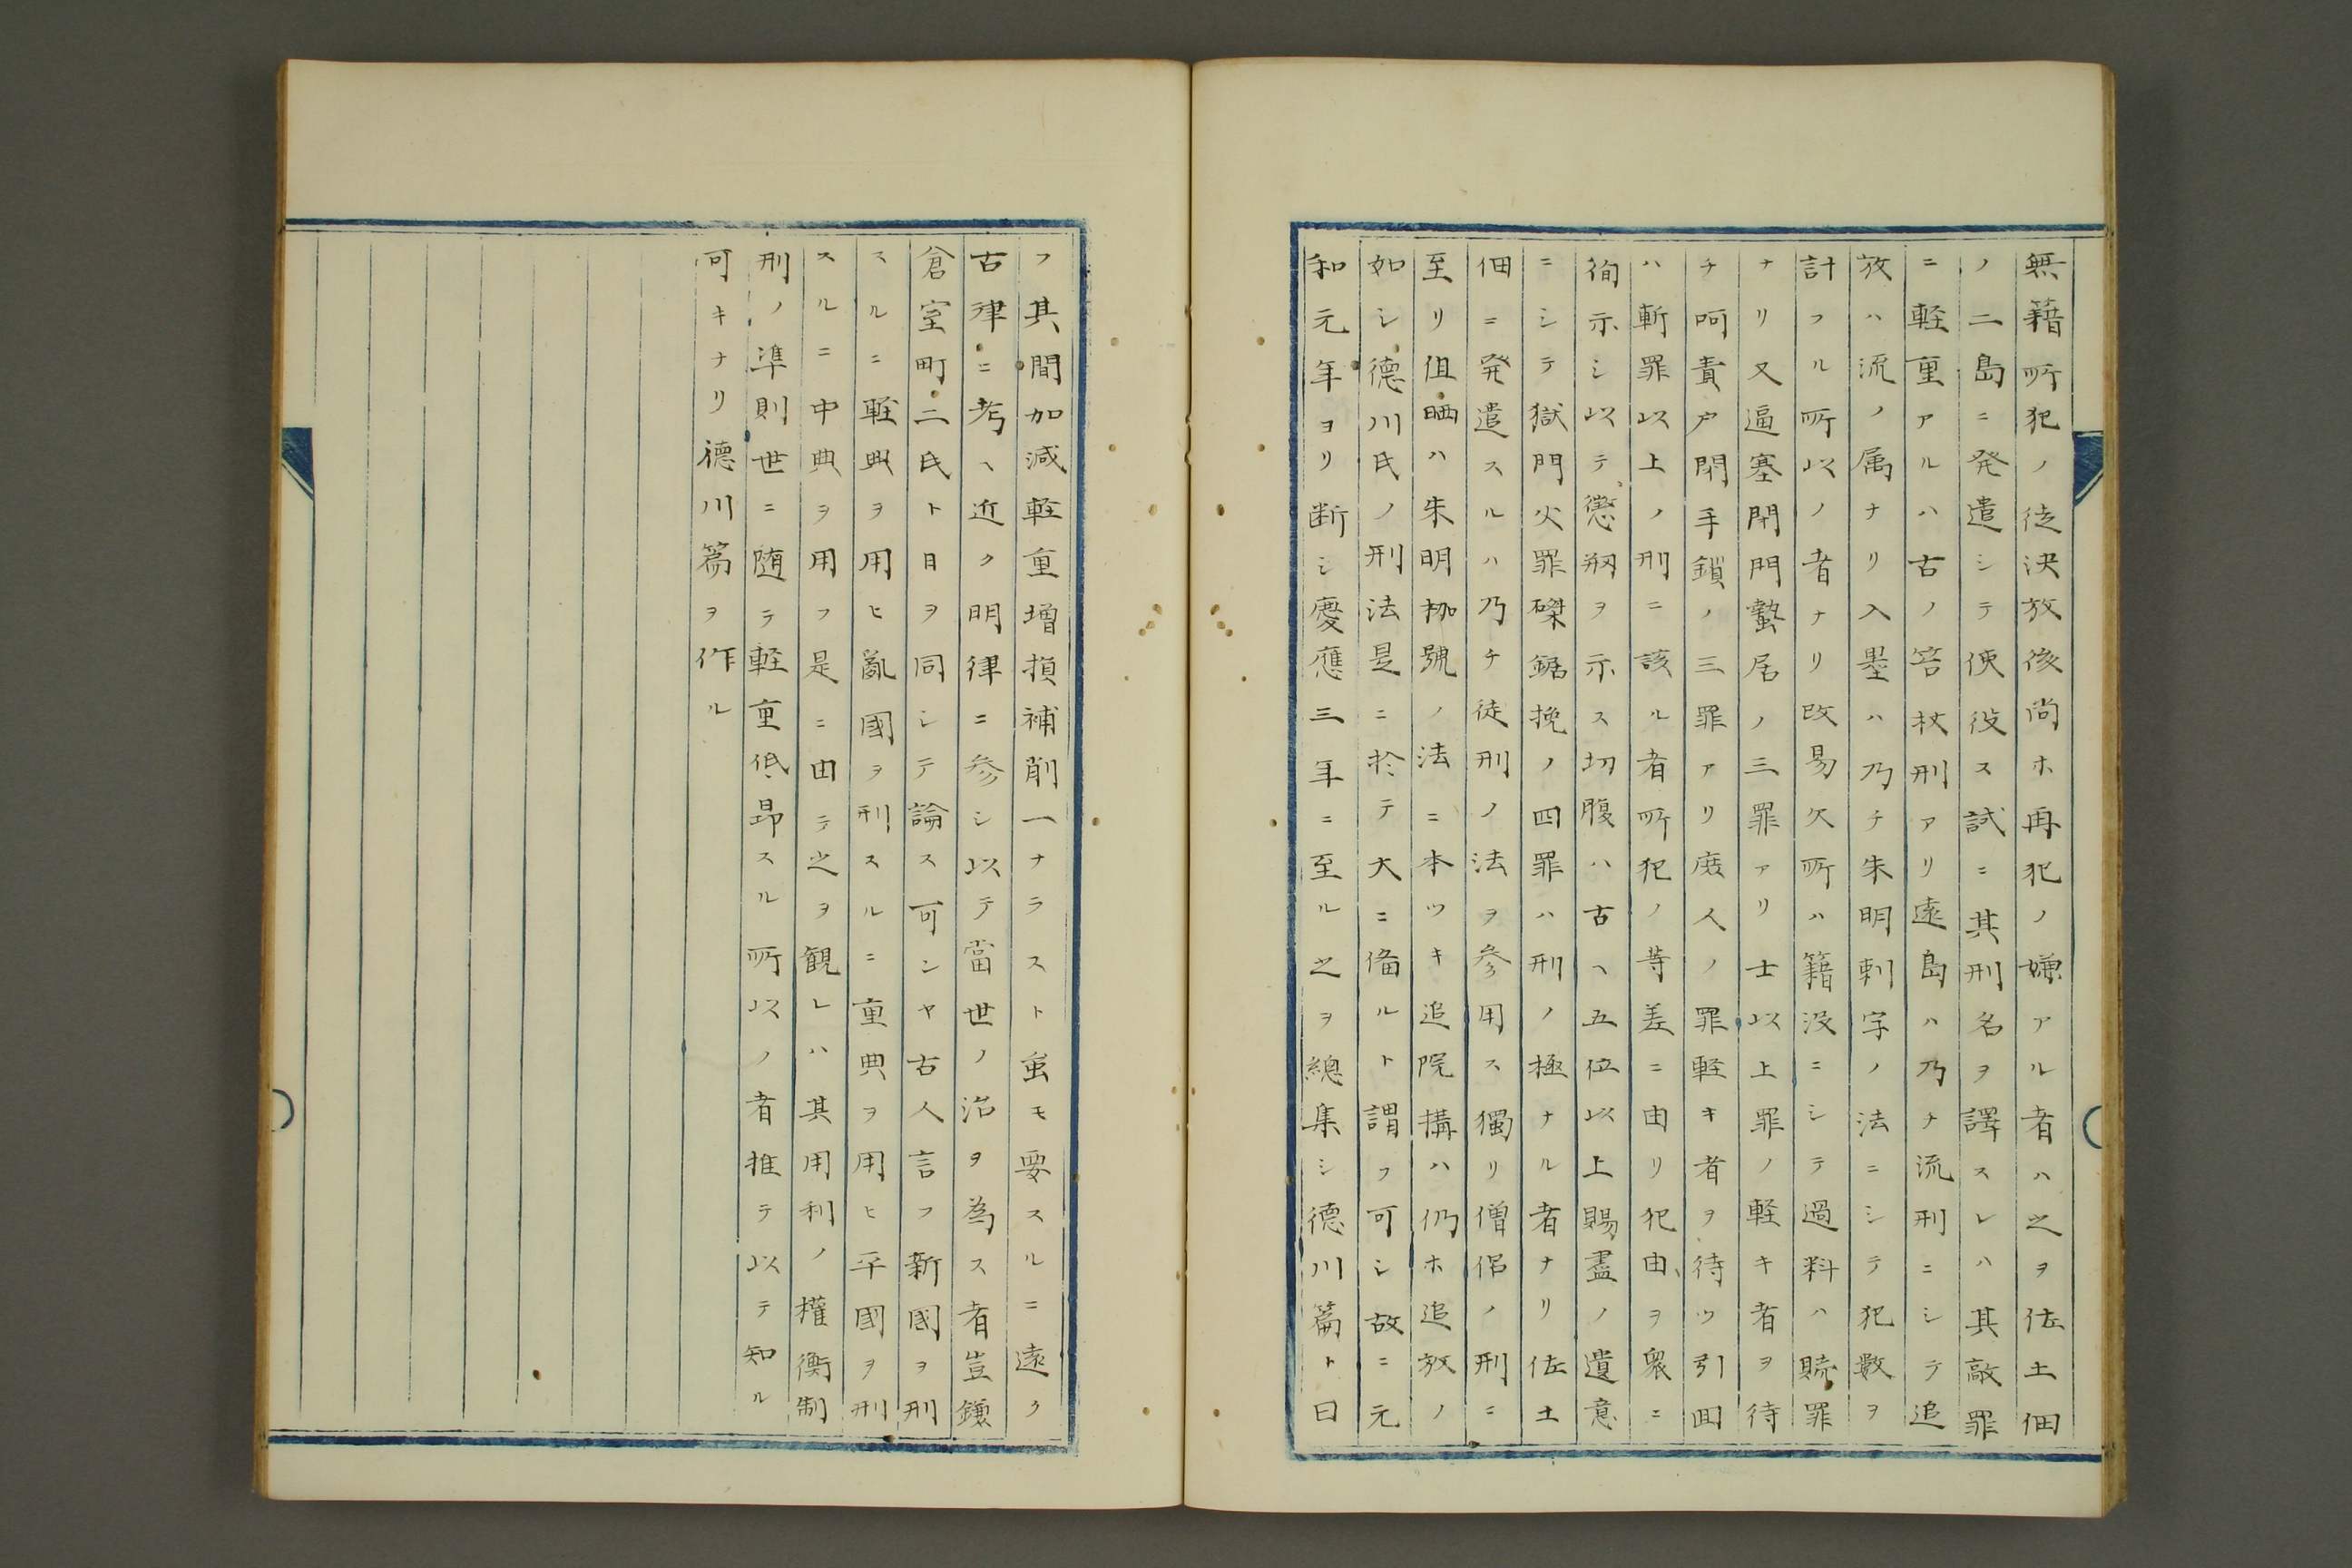 無籍所犯ノ徒決放後尚ホ再犯ノ嫌アル者ハ之ヲ佐土佃
ノ二島ニ発遣シテ使役ス試ニ其刑名ヲ譯スレハ其敲罪
ニ軽重アルハ古ノ笞杖刑アリ遠島ハ乃チ流刑ニシテ追
放ハ流ノ属ナリ入墨ハ乃チ朱明刺字ノ法ニシテ犯數ヲ
計フル所以ノ者ナリ改易欠所ハ籍没ニシテ過料ハ贖罪
ナリ又逼塞閉門蟄居ノ三罪アリ士以上罪ノ軽キ者ヲ待
チ呵責戸閉手鎖ノ三罪アリ庻人ノ罪軽キ者ヲ待ツ引囬
ハ斬罪以上ノ刑ニ該ル者所犯ノ等差ニ由リ犯由ヲ衆ニ
徇示シ以テ懲剏ヲ示ス切腹ハ古ヘ五位以上賜盡ノ遺意
ニシテ獄門火罪磔鋸挽ノ四罪ハ刑ノ極ナル者ナリ佐土
佃ニ発遣スルハ乃チ徒刑ノ法ヲ参用ス獨リ僧侶ノ刑ニ
至リ伹晒ハ朱明枷號ノ法ニ本ツキ追院搆ハ仍ホ追放ノ
如シ德川氏ノ刑法是ニ於テ大ニ僃ルト謂フ可シ故ニ元
和元年ヨリ断シ慶應三年ニ至ル之ヲ總集シ德川篇ト曰
フ其間加減軽重増損補削一ナラスト虽モ要スルニ遠ク
古律ニ考ヘ近ク明律ニ参シ以テ當世ノ治ヲ為ス者豈鎌
倉室町二氏ト日ヲ同シテ論ス可ンヤ古人言フ新國ヲ刑
スルニ軽典ヲ用ヒ亂國ヲ刑スルニ重典ヲ用ヒ平國ヲ刑
スルニ中典ヲ用フ是ニ由テ之ヲ観レハ其用利ノ權衡制
刑ノ準則世ニ随テ軽重低昻スル所以ノ者推テ以テ知ル
可キナリ德川篇ヲ作ル